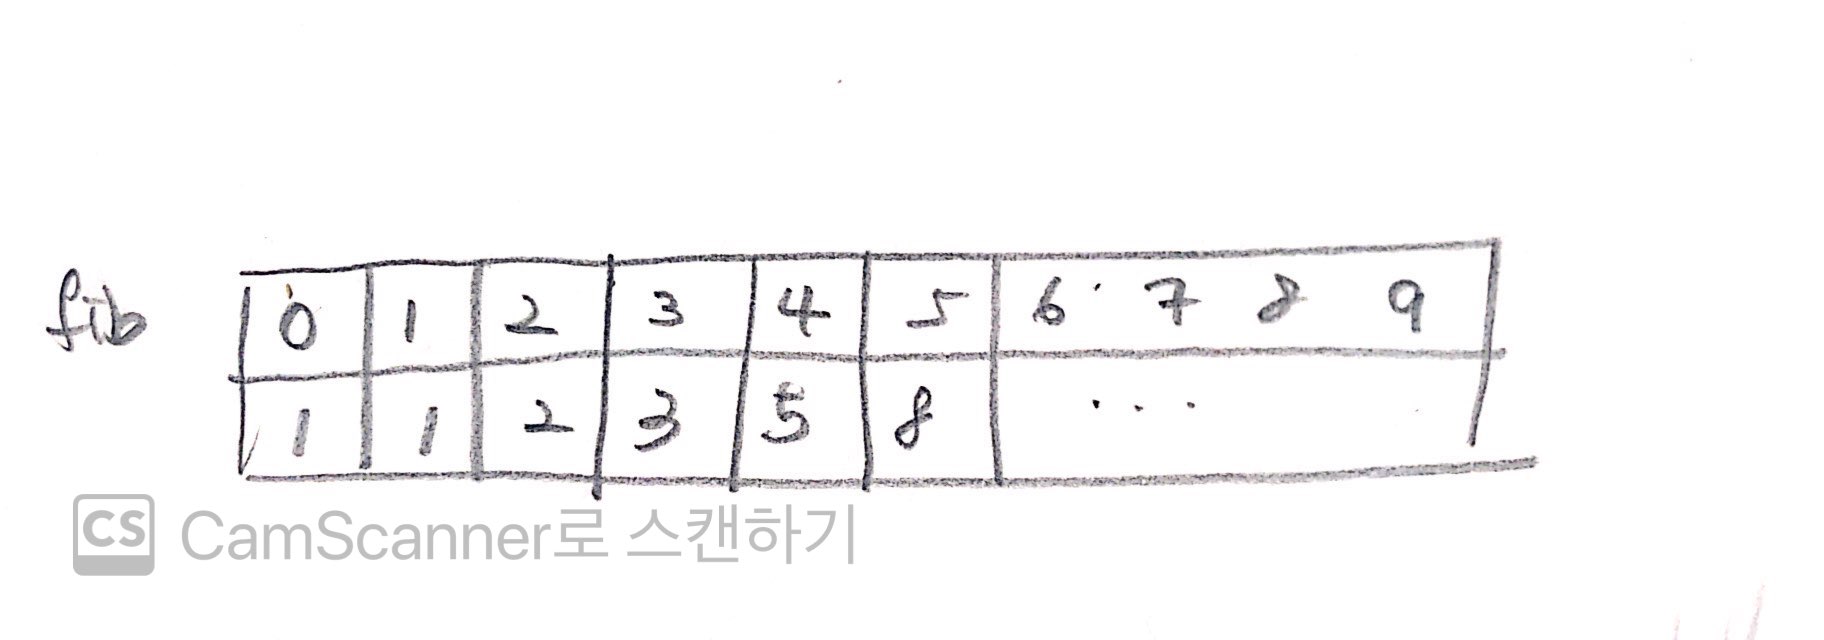 fib 0 1 2 3 4 5 6 7 8 9
1 1 2 3 5 8 ...
CS CamScanner로 스캔하기